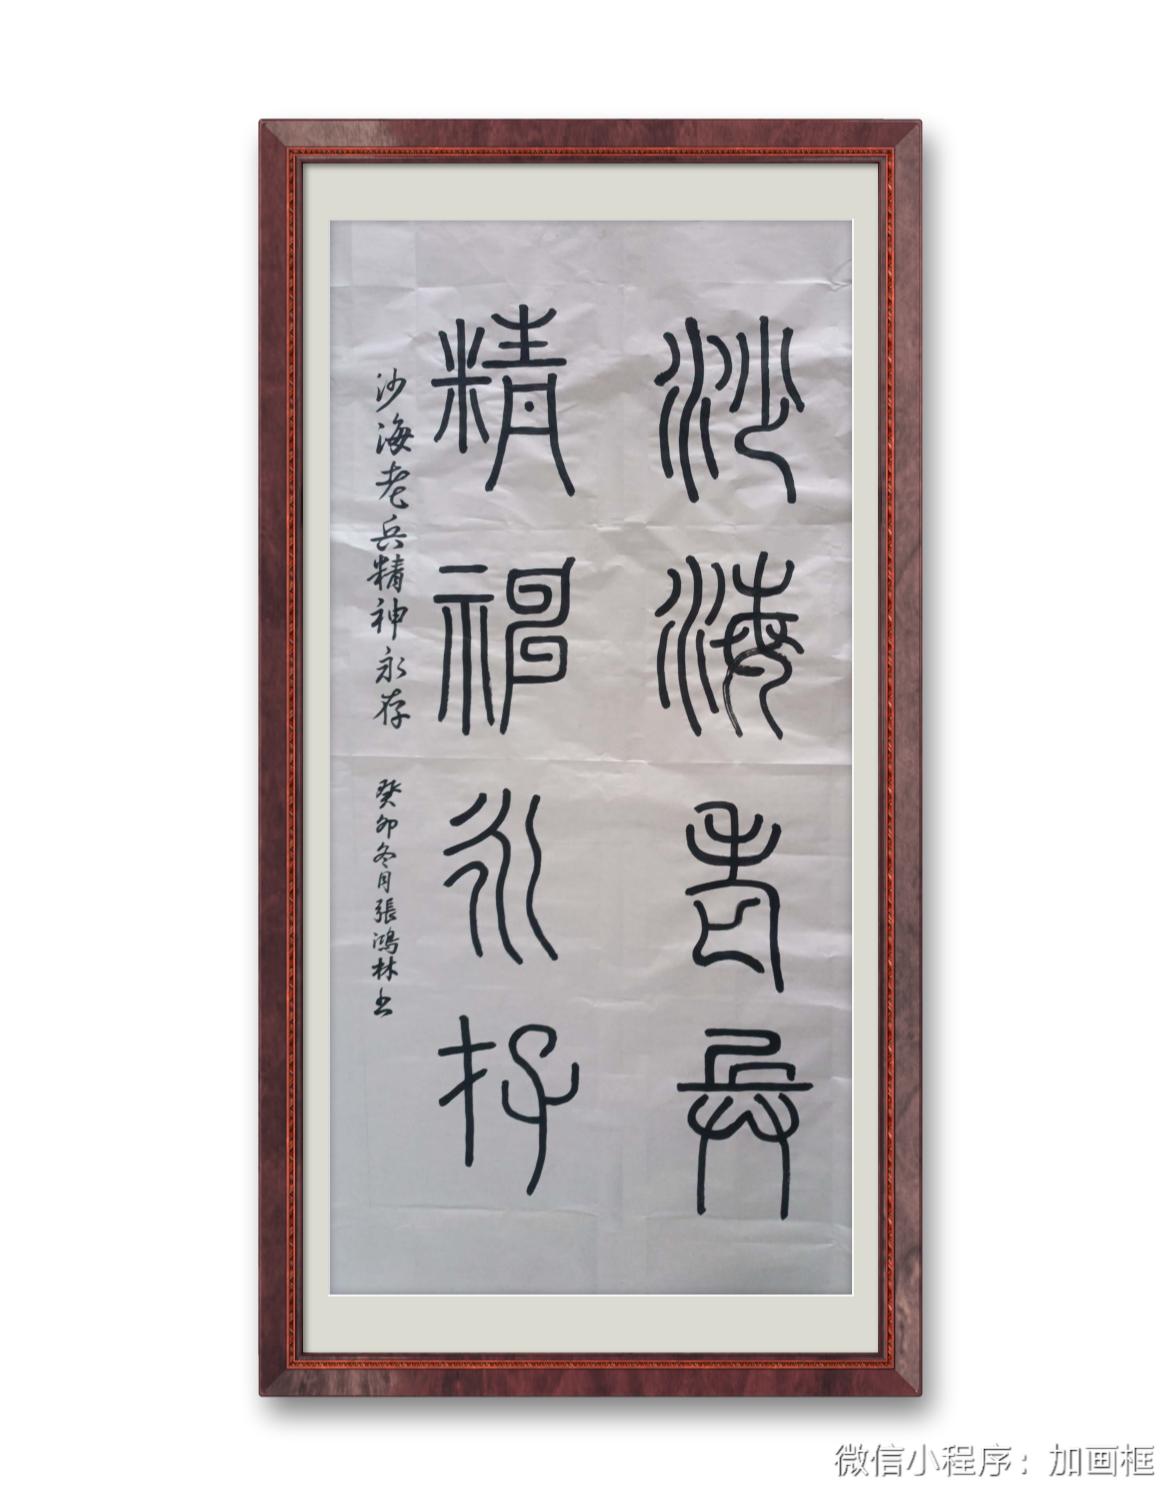 沙海老兵
精神永存
沙海老兵精神永存 癸卯冬月張鴻林书
微信小程序：加画框